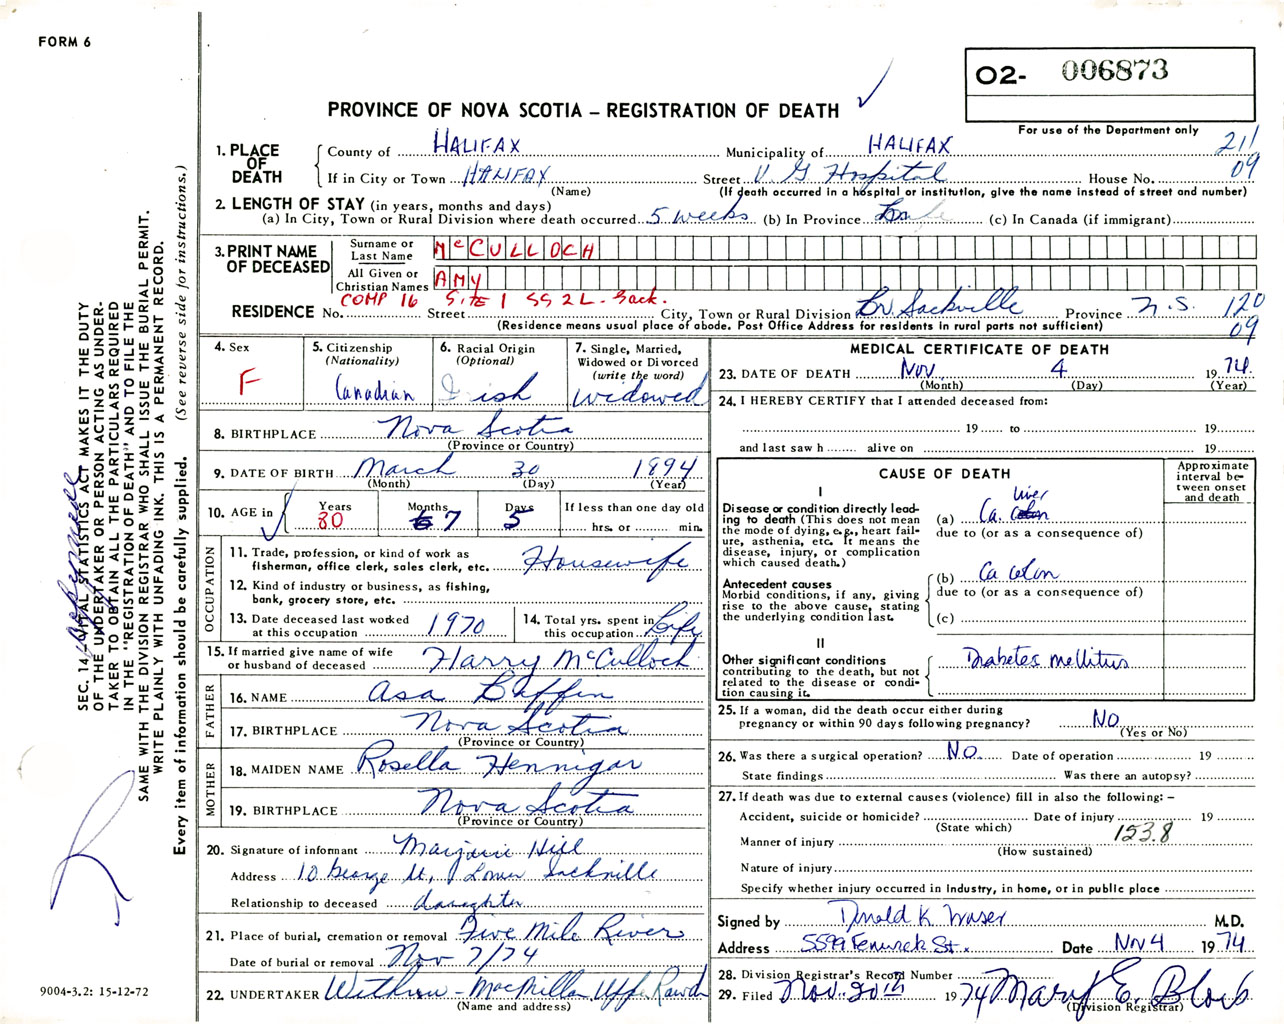 FORM 6
O2- 006873
PROVINCE OF NOVA SCOTIA – REGISTRATION OF DEATH
For use of the Department only
211
09
1. PLACE OF DEATH
County of HALIFAX Municipality of HALIFAX
If in City or Town HALIFAX Street V G Hospital House No.
(Name) (If death occurred in a hospital or institution, give the name instead of street and number)
2. LENGTH OF STAY (in years, months and days)
(a) In City, Town or Rural Division where death occurred 5 weeks (b) In Province (c) In Canada (if immigrant)
3. PRINT NAME OF DECEASED
Surname or Last Name McCULLOCH
All Given or Christian Names AMY
COMP 16 Site 1 SS 2 L. Sack.
RESIDENCE No. Street City, Town or Rural Division Lr. Sackville Province N.S. 120
(Residence means usual place of abode. Post Office Address for residents in rural parts not sufficient) 09
4. Sex F
5. Citizenship (Nationality) Canadian
6. Racial Origin (Optional) Irish
7. Single, Married, Widowed or Divorced (write the word) widowed
8. BIRTHPLACE Nova Scotia
(Province or Country)
9. DATE OF BIRTH March 30 1894
(Month) (Day) (Year)
10. AGE in Years 80 Months 7 Days 5 If less than one day old hrs. or min.
OCCUPATION
11. Trade, profession, or kind of work as fisherman, office clerk, sales clerk, etc. Housewife
12. Kind of industry or business, as fishing, bank, grocery store, etc.
13. Date deceased last worked at this occupation 1970
14. Total yrs. spent in this occupation Life
15. If married give name of wife or husband of deceased Harry McCulloch
FATHER
16. NAME Asa Laffin
17. BIRTHPLACE Nova Scotia
(Province or Country)
MOTHER
18. MAIDEN NAME Rosella Hennigar
19. BIRTHPLACE Nova Scotia
(Province or Country)
20. Signature of informant Marjorie Hill
Address 10 George St, Lower Sackville
Relationship to deceased daughter
21. Place of burial, cremation or removal Five Mile River
Date of burial or removal Nov 7/74
22. UNDERTAKER Withrow - MacMilla Uppe Rawd
(Name and address)
MEDICAL CERTIFICATE OF DEATH
23. DATE OF DEATH Nov. 4 1974.
(Month) (Day) (Year)
24. I HEREBY CERTIFY that I attended deceased from:
19 to 19
and last saw h alive on 19
CAUSE OF DEATH
Approximate interval between onset and death
I
Disease or condition directly leading to death (This does not mean the mode of dying, e.g., heart failure, asthenia, etc. It means the disease, injury, or complication which caused death.)
(a) Ca. liver
due to (or as a consequence of)
Antecedent causes
Morbid conditions, if any, giving rise to the above cause, stating the underlying condition last.
(b) Ca colon
due to (or as a consequence of)
(c)
II
Other significant conditions contributing to the death, but not related to the disease or condition causing it.
Diabetes mellitus
25. If a woman, did the death occur either during pregnancy or within 90 days following pregnancy? NO
(Yes or No)
26. Was there a surgical operation? NO Date of operation 19
State findings Was there an autopsy?
27. If death was due to external causes (violence) fill in also the following: –
Accident, suicide or homicide? Date of injury 19
(State which)
Manner of injury 153.8
(How sustained)
Nature of injury
Specify whether injury occurred in Industry, in home, or in public place
Signed by Donald K. Fraser M.D.
Address 5599 Fenwick St. Date Nov 4 1974
28. Division Registrar's Record Number
29. Filed Nov. 20th 1974 Mary E. Block
(Division Registrar)
SEC. 14 VITAL STATISTICS ACT MAKES IT THE DUTY
OF THE UNDERTAKER OR PERSON ACTING AS UNDER-
TAKER TO OBTAIN ALL THE PARTICULARS REQUIRED
IN THE "REGISTRATION OF DEATH" AND TO FILE THE
SAME WITH THE DIVISION REGISTRAR WHO SHALL ISSUE THE BURIAL PERMIT.
WRITE PLAINLY WITH UNFADING INK. THIS IS A PERMANENT RECORD.
Every item of information should be carefully supplied. (See reverse side for instructions.)
9004-3.2: 15-12-72